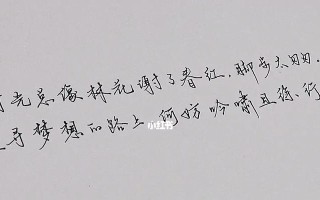 时光总像林花谢了春红,脚步太匆匆.
追寻梦想的路上何妨吟啸且徐行
小红书